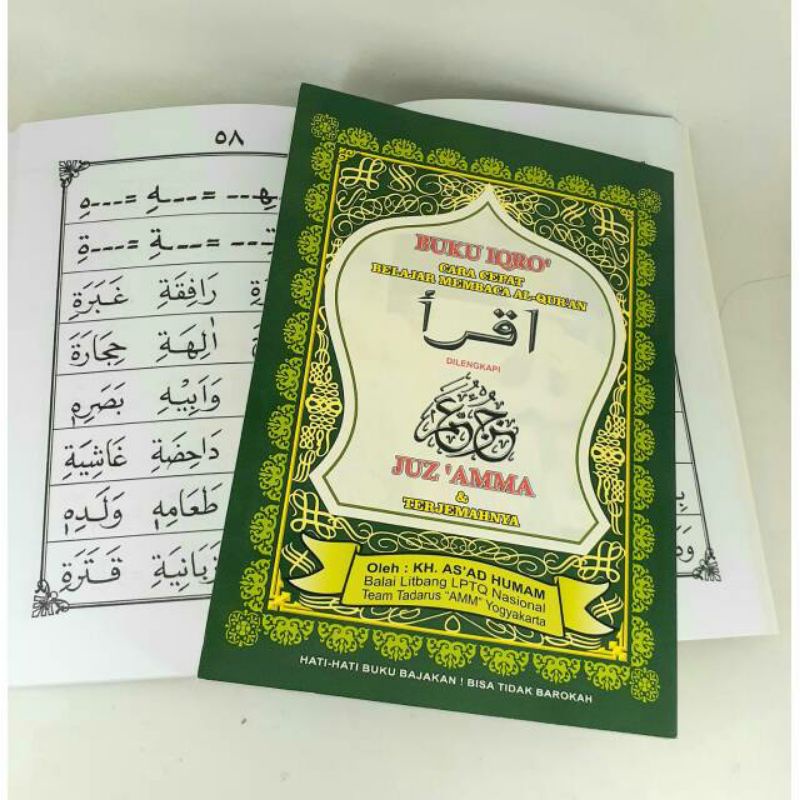 BUKU IQRO'
CARA CEPAT
BELAJAR MEMBACA AL-QUR'AN
اقرأ
DILENGKAPI
جزء عم
JUZ 'AMMA
&
TERJEMAHNYA
Oleh : KH. AS'AD HUMAM
Balai Litbang LPTQ Nasional
Team Tadarus "AMM" Yogyakarta
HATI-HATI BUKU BAJAKAN ! BISA TIDAK BAROKAH
٥٨
--- = ـهِ --- = ---هِ
--- = ـةِ --- = ---ةِ
رَافِقَةِ غَبَرَةِ
اٰلِهَةِ حِجَارَةِ
وَاَبِيْهِ بَصَرِهٖ
دَاحِضَةِ غَاشِيَةِ
طَعَامِهٖ وَلَدِهٖ
زَبَانِيَةِ قَتَرَةِ